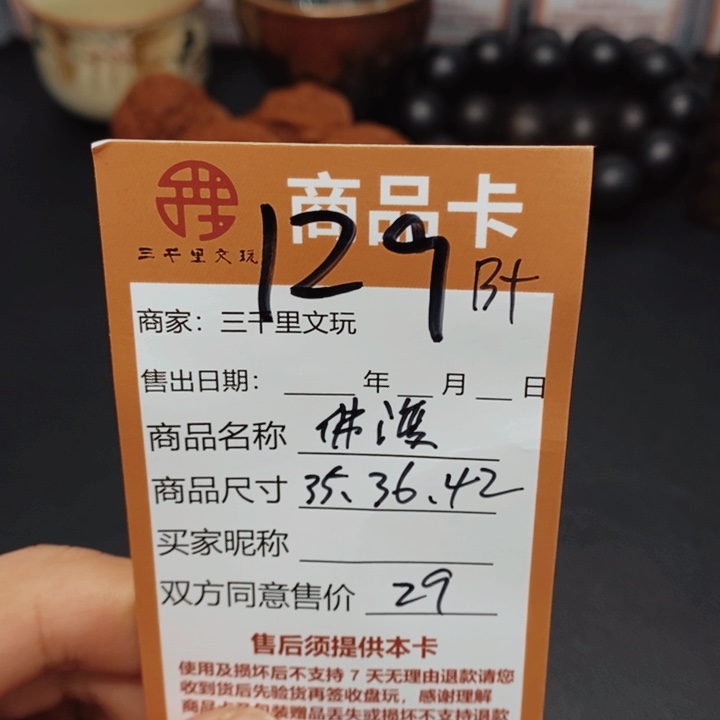 商品卡
三千里文玩
129 B+
商家：三千里文玩
售出日期：____年__月__日
商品名称
商品尺寸 35、36、42
买家昵称
双方同意售价 29
售后须提供本卡
使用及损坏后不支持7天无理由退款请您
收到货后先验货再签收盘玩，感谢理解
商品卡及包装赠品丢失或损坏不支持退款